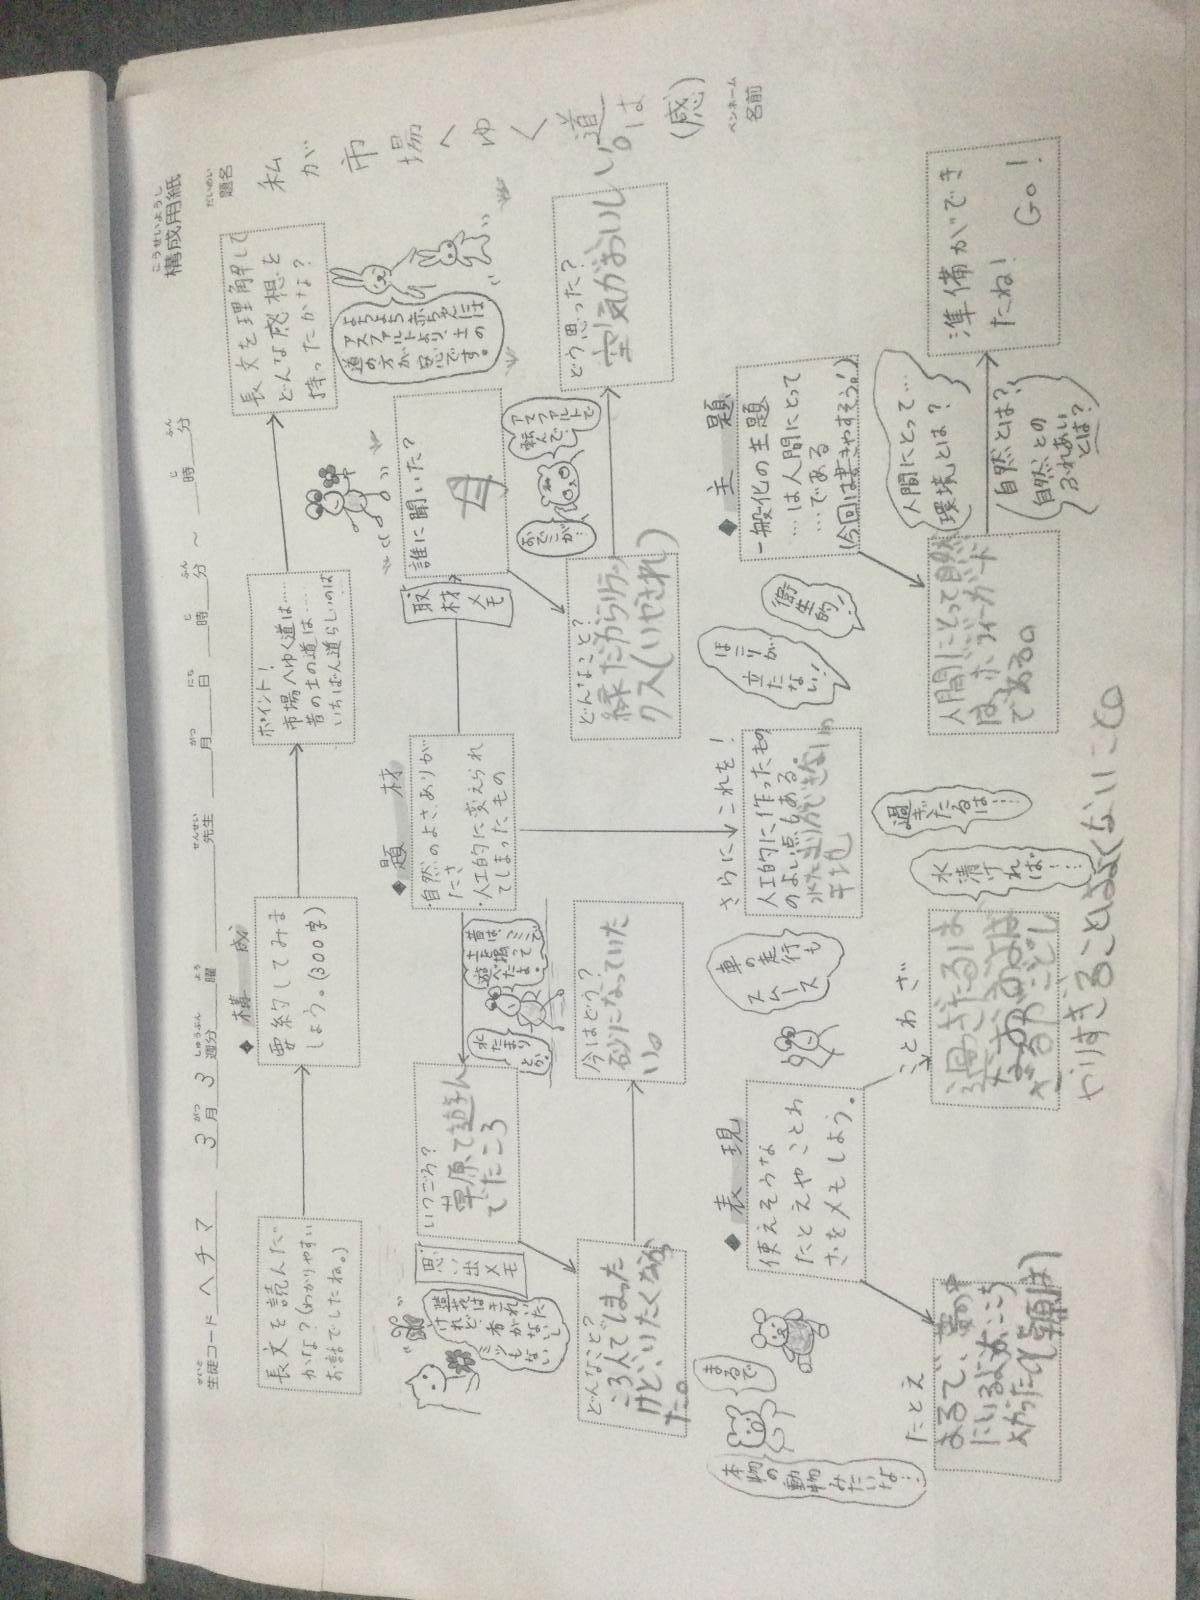 こうせいようし
構成用紙
だいめい
題名
私が市場へゆく道は(感)
ペンネーム
名前
せいと
生徒コード ヘチマ
3 月 3 週分 曜 先生 月 日 時 分 ～ 時 分
がつ しゅうぶん よう せんせい がつ にち じ ふん じ ふん
◆構成
長文を読んだ
かな?(わかりやすい
お話でしたね。)
要約してみま
しょう。(300字)
ポイント!
市場へゆく道は……
昔の土の道は……
いちばん道らしいのは
長文を理解して
どんな感想を
持ったかな?
◆題材
・自然のよさ、ありが
たさ
・人工的に変えられ
てしまったもの
思い出メモ
いつごろ?
草原で遊ん
でたころ
どんなこと?
ころんでしまった
けど、いたくなか
た。
今はどう?
砂りになっていた
い。
取材メモ
誰に聞いた?
母
どんなこと?
緑だからリラッ
クス(いやされ)
どう思った?
空気がおいしい。
昔は、ミミズで
土を掘って
遊べたよ
水たまり
とか
アスファルトで
転んで、
おでこが!
道の方が、安心です。
さらにこれを!
人工的に作ったもの
のよい点もある。
水たまりができない
平地
車の走行も
スムーズ
ほこりが
立たない!
衛生的!
◆表現
使えそうな
たとえやことわ
ざをメモしよう。
たとえ
まるで
本物の動物みたいな…
ことわざ
過ぎたるは
なおおよば
ざるがごとし
やりすぎることはよくないこと
過ぎたるは……
水清ければ……
◆主題
一般化の主題
…は人間にとって
…である
(今回は書きやすそう!)
人間にとって自然
は、ボディーガード
である。
人間にとって…
環境とは?
自然とは?
自然との
ふれあい
とは?
準備ができ
たね!
Go!